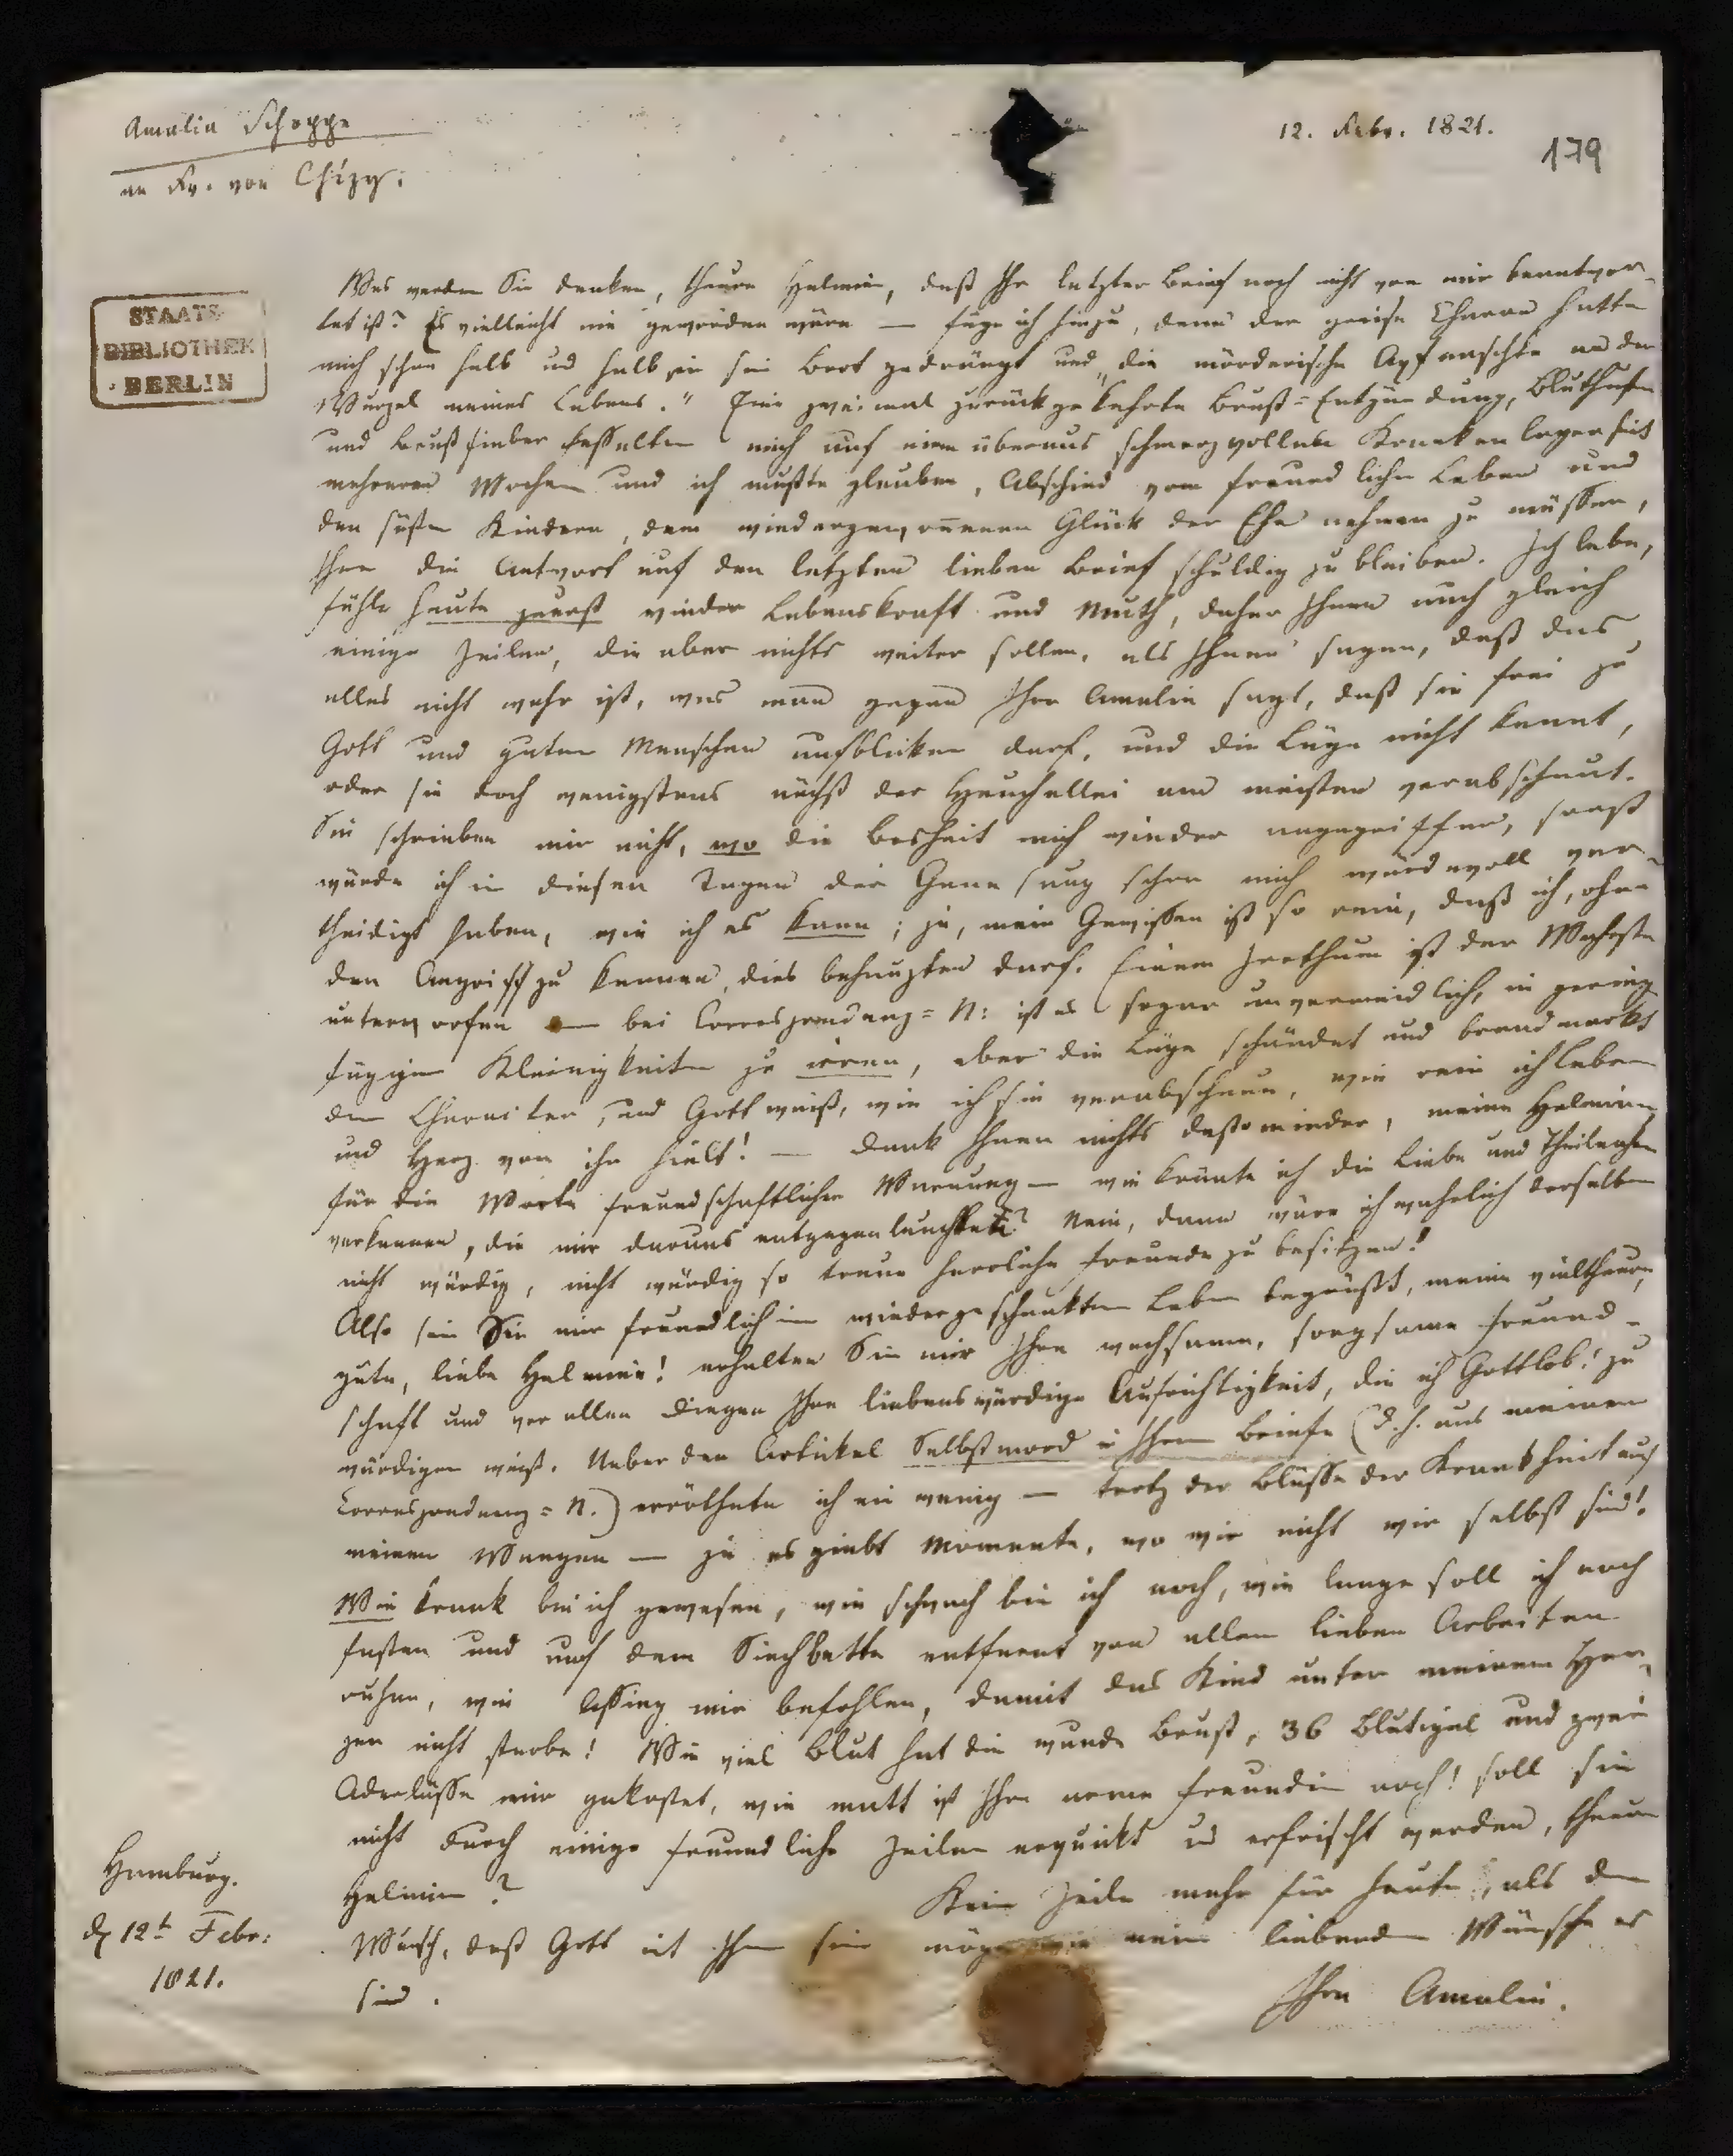 Amalia Schoppe
an Fr. von Chézy.
12. Febr. 1821.
179
STAATS-
BIBLIOTHEK
BERLIN
Was werden Sie denken, theure Helmina, daß Ihr letzter Brief noch nicht von mir beantwor-
tet ist? Es vielleicht nie geworden wäre — füge ich hinzu, denn der greise Charon hatte
mich schon halb und halb in sein Boot gedrängt und die mörderische Axt rauschte an der
Wurzel meines Lebens." Eine zweimal zurückgekehrte Brust-Entzündung, Bluthusten
und Brustfieber fesselten mich auf einem überaus schmerzvollen Krankenlager seit
mehreren Wochen und ich mußte glauben, Abschied vom freundlichen Leben und
den süßen Kindern, dem wiedergewonnenen Glück der Ehe nehmen zu müssen,
Ihnen die Antwort auf den letzten lieben Brief schuldig zu bleiben. Ich lebe,
fühle heute zuerst wieder Lebenskraft und Muth, daher Ihnen auch gleich
einige Zeilen, die aber nichts weiter sollen, als Ihnen sagen, daß das
alles nicht wahr ist, was man gegen Ihre Amalie sagt, daß sie frei zu
Gott und guten Menschen aufblicken darf, und die Lüge nicht kennt,
oder sie doch wenigstens nächst der Heuchellei am meisten verabscheut.
Sie schrieben mir nicht, wo die Bosheit mich wieder angegriffen, sonst
würde ich in diesen Tagen der Genesung schon mich würdevoll ver-
theidigt haben, wie ich es kann; ja, mein Gewissen ist so rein, daß ich, ohne
den Angriff zu kennen, dies behaupten darf. Einem Irrthum ist der Wahrste
unterworfen — bei Correspondenz-N: ist es sogar unvermeidlich, in gering
fügigen Kleinigkeiten zu irren, aber die Lüge schändet und brandmarkt
den Character, und Gott weiß, wie ich sie verabscheue, wie rein ich Leben
und Herz von ihr hielt! — Dank Ihnen nichts destominder, meine Helmina,
für die Worte freundschaftlicher Warnung — wie könnte ich die Liebe und Theilnahme
verkennen, die mir daraus entgegenleuchtet? Nein, dann wäre ich wahrlich derselben
nicht würdig, nicht würdig so treue herrliche Freunde zu besitzen!
Also sein Sie mir freundlich im wiedergeschenkten Leben begrüßt, meine vieltheure,
gute, liebe Helmina! erhalten Sie mir Ihre wachsame, sorgsame Freund-
schaft und vor allen Dingen Ihre liebenswürdige Aufrichtigkeit, die ich Gottlob! zu
würdigen weiß. Ueber den Artickel Selbstmord in Ihrem Briefe (d. h. aus meinen
Correspondenz-N.) erröthete ich ein wenig — trotz der Blässe der Krankheit auf
meinen Wangen — ja es giebt Momente, wo wir nicht wir selbst sind!
Wie krank bin ich gewesen, wie schwach bin ich noch, wie lange soll ich noch
fasten und auf dem Siechbette entfernt von allen lieben Arbeiten
ruhen, wie Assing mir befohlen, damit das Kind unter meinem Her-
zen nicht sterbe! Wie viel Blut hat die wunde Brust, 36 Blutigel und zwei
Aderlässe mir gekostet, wie matt ist Ihre arme Freundin noch! soll sie
nicht durch einige freundliche Zeilen erquickt und erfrischt werden, theure
Helmina?
Keine Zeile mehr für heute, als den
Wunsch, daß Gott mit Ihnen sein möge wie meine liebenden Wünsche es
sind.
Ihre Amalie.
Hamburg.
d 12t Febr:
1821.